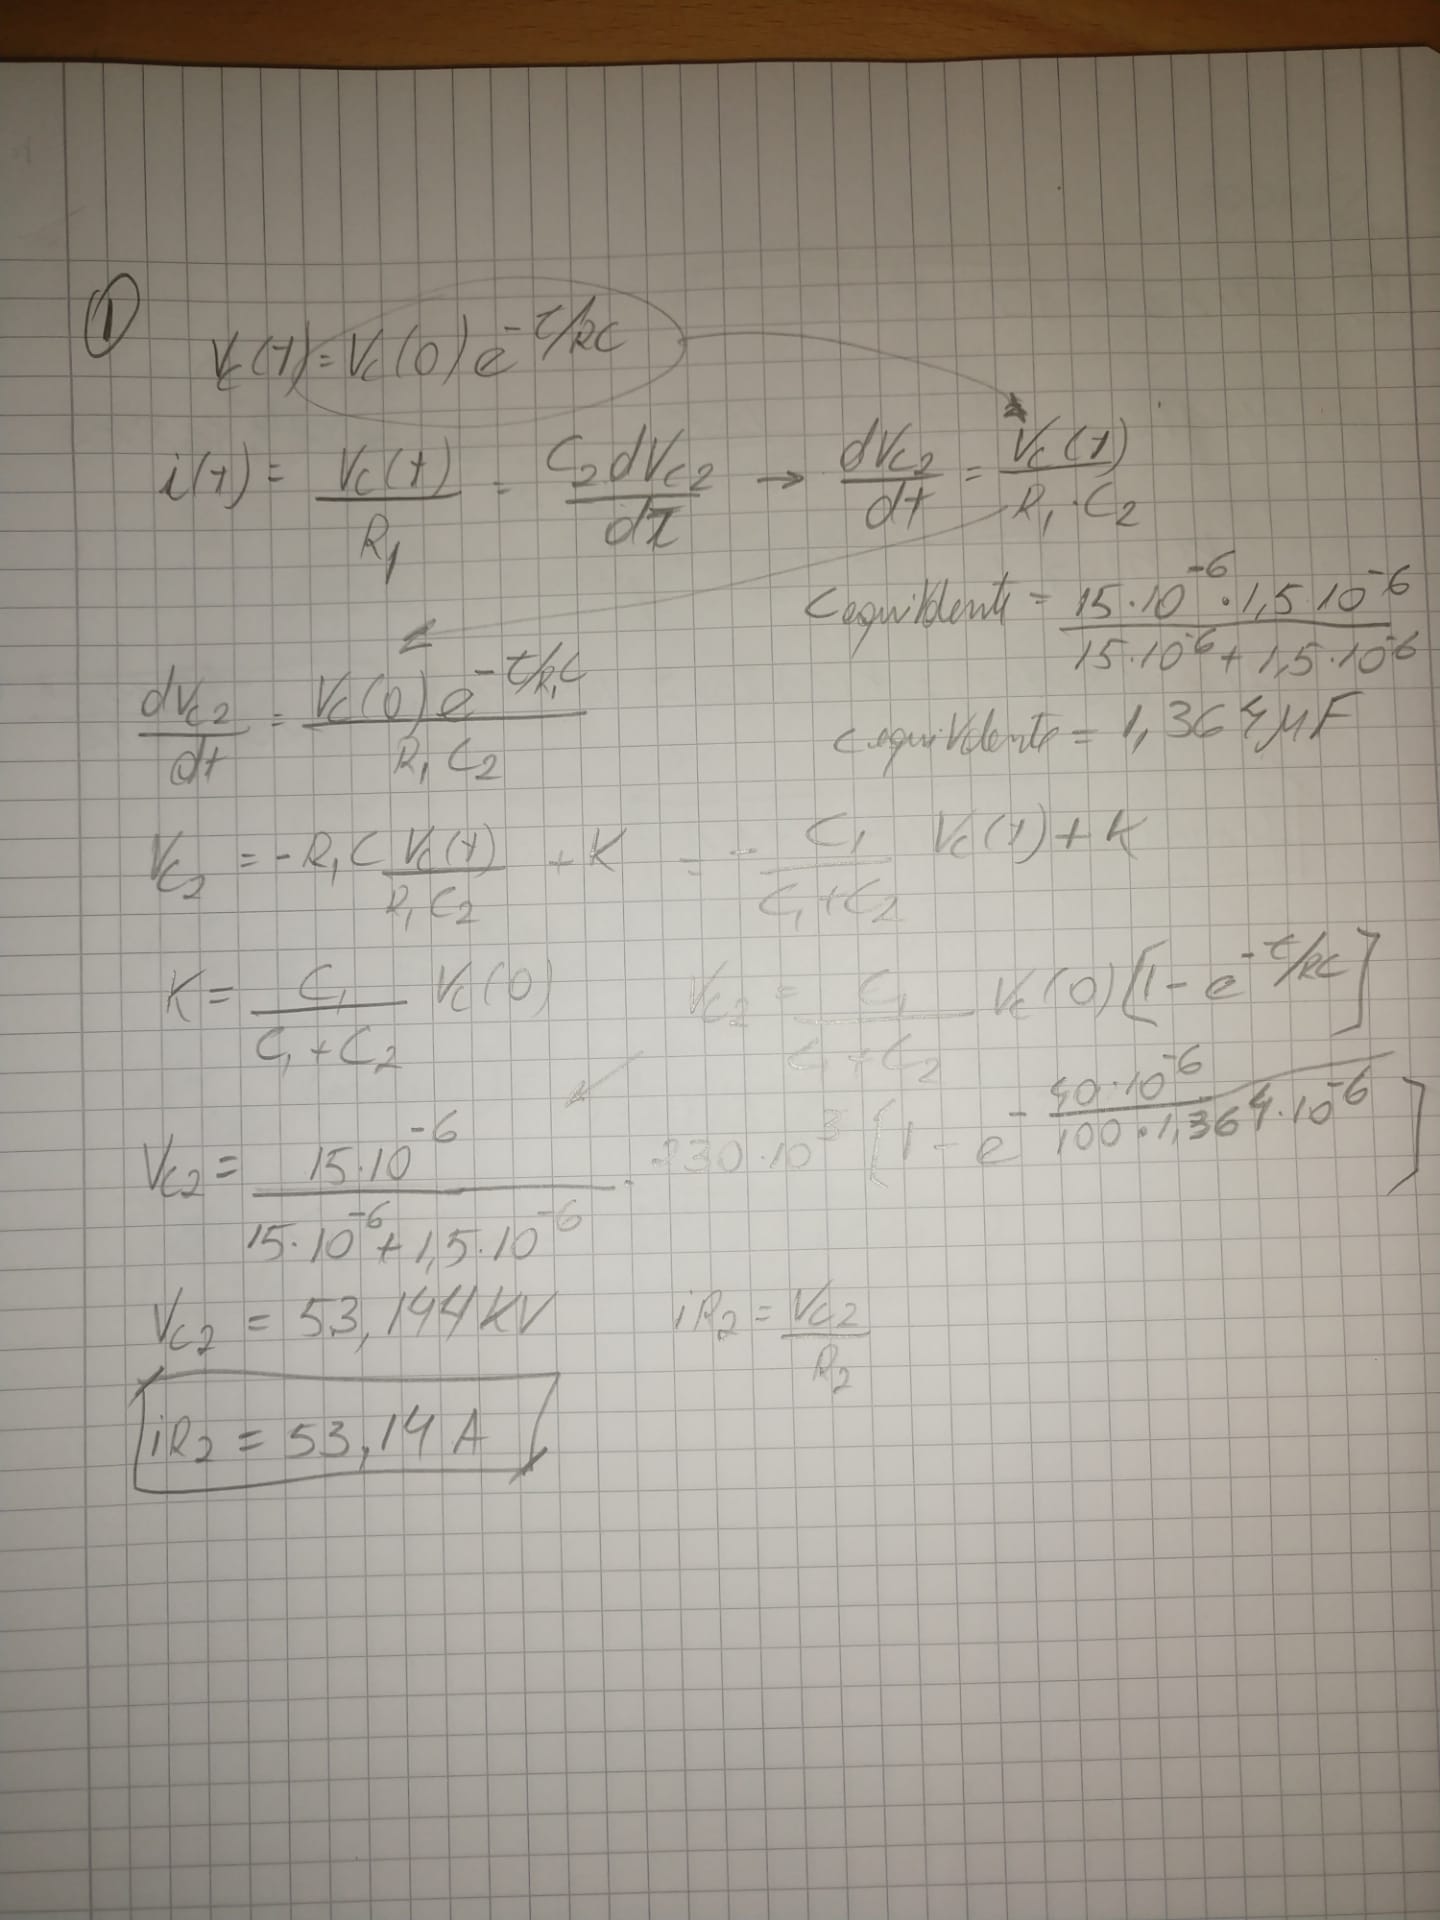 ①
Vc(t) = Vc(0) e^-t/RC
i(t) = Vc(t)/R1 = C2 dVc2/dt → dVc2/dt = Vc(t)/R1·C2
Cequivalente = 15·10^-6 · 1,5·10^-6 / 15·10^-6 + 1,5·10^-6
dVc2/dt = Vc(0) e^-t/R1C / R1 C2
Cequivalente = 1,364 μF
Vc2 = - R1 C Vc(t)/R1 C2 + K = - C1/C1+C2 Vc(t) + K
K = C1/C1+C2 Vc(0)
Vc2 = C1/C1+C2 Vc(0) [1 - e^-t/RC]
Vc2 = 15·10^-6 / 15·10^-6 + 1,5·10^-6 · 230·10^3 [1 - e^- 40·10^-6 / 100·1,364·10^-6]
Vc2 = 53,144 KV
iR2 = Vc2/R2
iR2 = 53,14 A